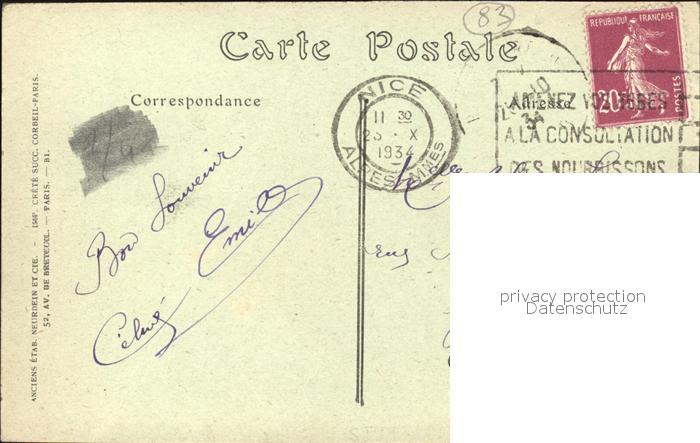 83
Carte Postale
RÉPUBLIQUE FRANÇAISE
20c
POSTES
Correspondance
Adresse
NICE
11 30
23 · X
1934
ALPES MMES
AMENEZ VOS BEBES
A LA CONSULTATION
DES NOURRISSONS
Bon Souvenir
Emile
rue
privacy protection
Datenschutz
ANCIENS ÉTAB. NEURDEIN ET CIE. — IMP. CRÉTÉ SUCC. CORBEIL-PARIS.
52, AV. DE BRETEUIL. — PARIS. — B1.